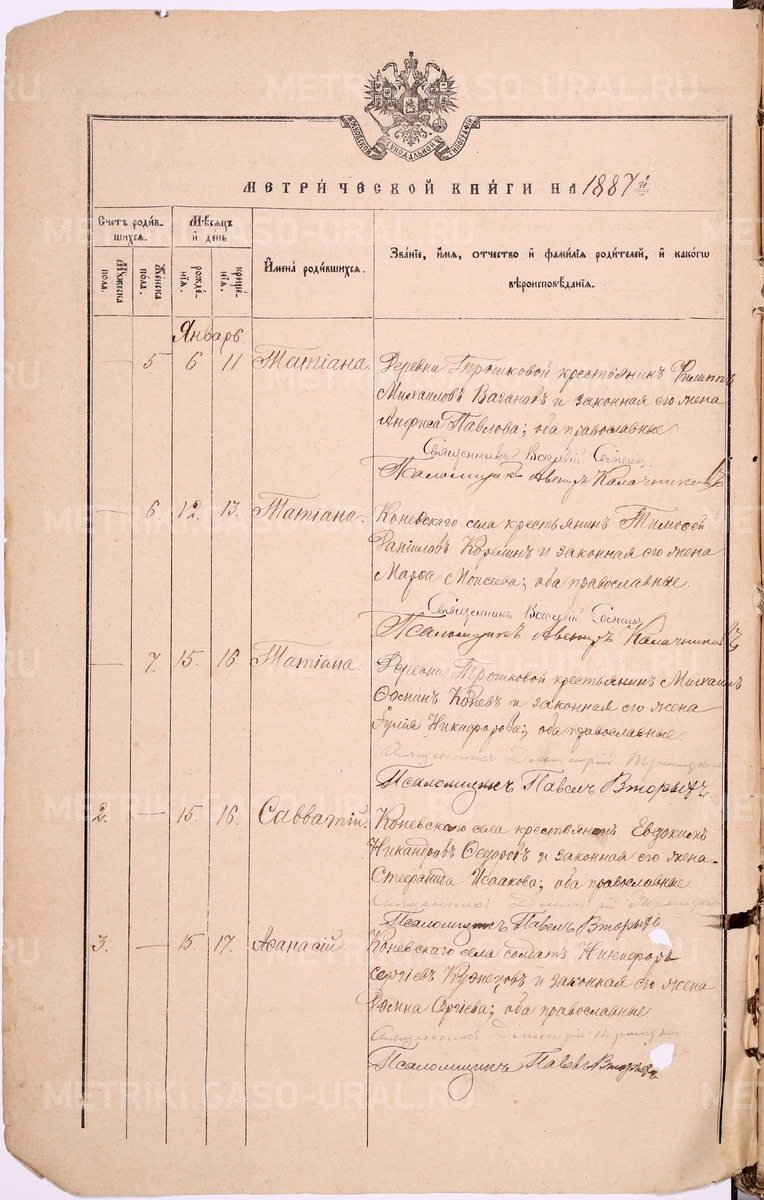 МОСКОВСКОЙ СѴНОДАЛЬНОЙ ТИПОГРАФІИ
МЕТРИ́ЧЕСКОЙ КНИ́ГИ НА 1887й
Счетъ роди́в-
шихся.
Мꙋжеска
пола.
Же́нска
пола.
Мѣ́сяцъ
и҆ де́нь
рожде́-
нїѧ.
креще́-
нїѧ.
И҆мена̀ роди́вшихся.
Зва́нїе, и҆́мя, ѻ҆тчество и҆ фами́лїя роди́телей, и҆ како́гѡ
вѣроисповѣ́данїя.
Январь
— 5 6 11 Татіана. Деревни Трошковой крестьянинъ Филиппъ
Михаиловъ Ваганов и законная его жена
Анфиса Павлова; оба православные
Священникъ Василій
Псаломщикъ Авениръ Калачниковъ
— 6 12. 13. Татіана. Коневского села крестьянинъ Тимофей
Даніиловъ Корелинъ и законная его жена
Марфа Моисеева; оба православные.
Священникъ Василій
Псаломщикъ Авениръ Калачниковъ
— 7. 15. 16 Татіана. Деревни Трошковой крестьянинъ Михаилъ
Коневъ и законная его жена
Іулія Никифорова; оба православные
Священникъ Димитрій Троицкій
Псаломщикъ Павелъ Вторыхъ
2. — 15. 16. Савватій. Коневского села крестьянинъ Евдокимъ
Никандровъ Федоровъ и законная его жена
Стефанида Исаакова; оба православные
Священникъ Димитрій Троицкій
Псаломщикъ Павелъ Вторыхъ
3. — 15 17. Афанасій. Коневского села солдатъ Никифоръ
Сергіевъ Кузнецовъ и законная его жена
Домна Сергіева; оба православные
Священникъ Димитрій Троицкій
Псаломщикъ Павелъ Вторыхъ
METRIKI.GASO-URAL.RU